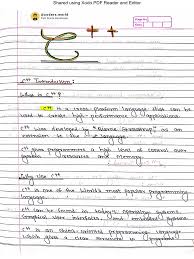 Shared using Xodo PDF Reader and Editor
Coders.world
Page No.
Date
C++
C++ Introduction:
What is C++?
C++ is a cross-platform language that can be
used to create high-performance applications.
C++ was developed by "Bjarne Stroustrup" as an
extension to the C language.
C++ give programmers a high level of control over
system resources and memory.
Why Use C++
C++ is one of the world's most popular programming
language.
C++ can be found in today's operating systems
Graphical User Interfaces, and embedded systems.
C++ is an object-oriented programming language
which gives a clear structure to programs